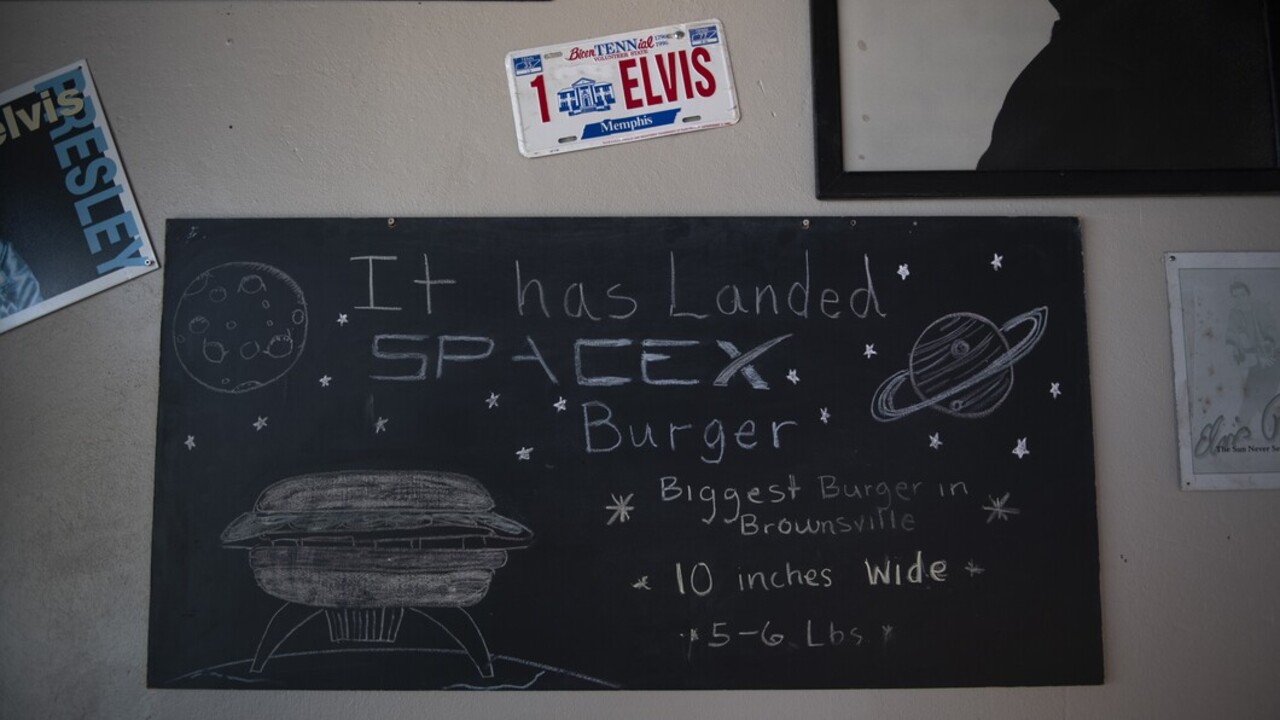 elvis
PRESLEY
BicenTENNial
VOLUNTEER STATE
1796
1996
1 ELVIS
Memphis
It has Landed
SPACEX
Burger
Biggest Burger in
Brownsville
10 inches Wide
5-6 Lbs
Elvis